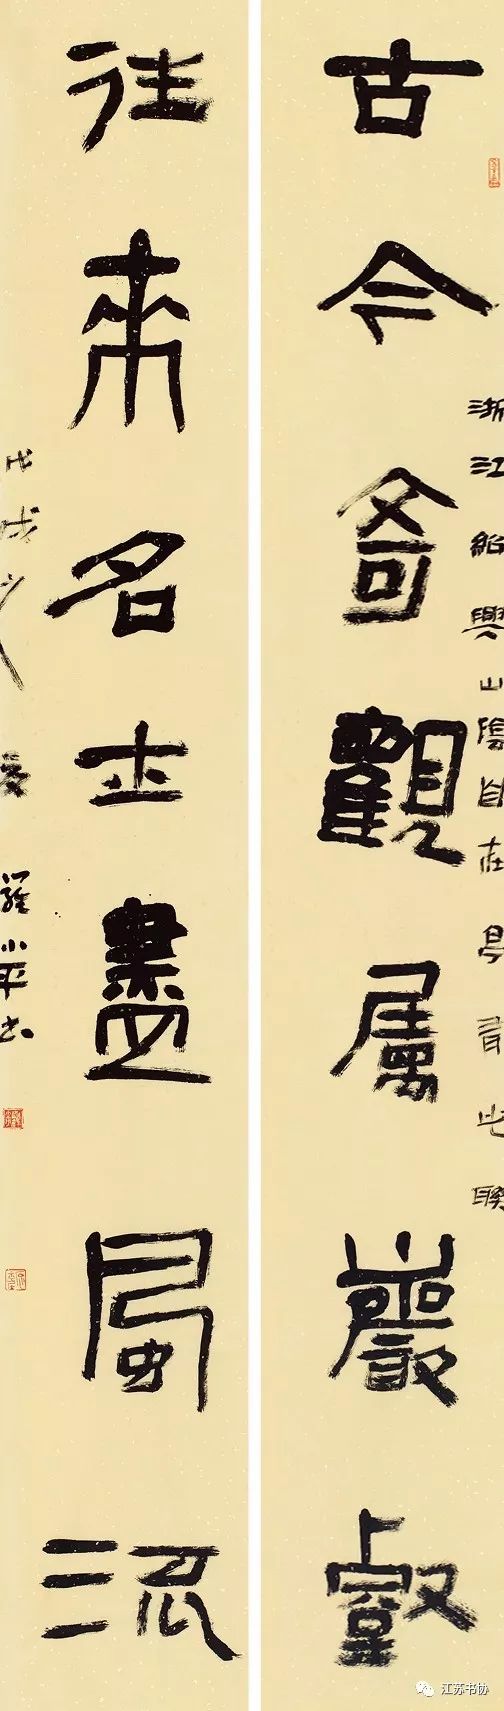 古今奇觀屬巖壑
浙江紹興山陰自在亭有此聯
往來名士盡風流
戊戌之夏羅小平書
江苏书协